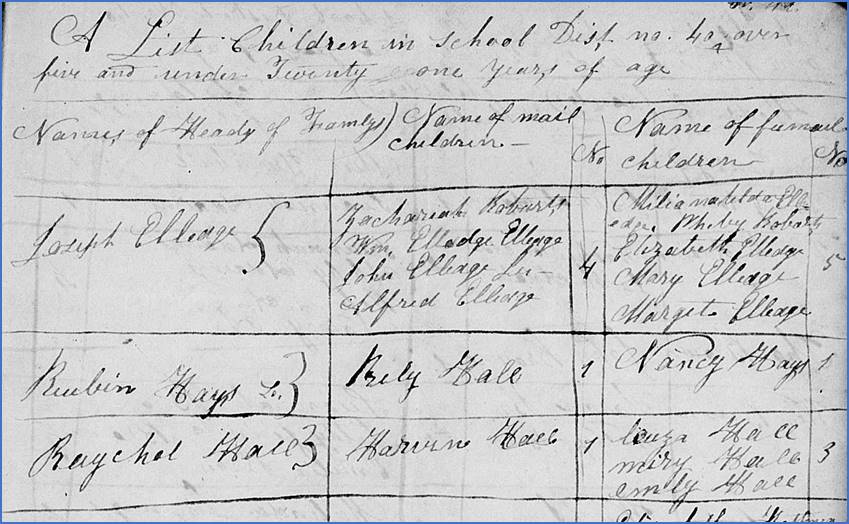 A List Children in School Dist no. 40 over
five and under Twenty one Years of age
Names of Heads of Familys) Name of mail
children —
No
Name of femail
children
No
Joseph Elledge {
Zachariah Roberts
Wm. Elledge Elledge
John Elledge
Alfred Elledge
4
Elledge Roberts
Elizabeth Elledge
Mary Elledge
Marget Elledge
5
Reubin Hays }
Rily Hall
1
Nancy Hays
1
Raychel Hall }
Harvin Hall
1
louza Hall
miry Hall
emily Hall
3